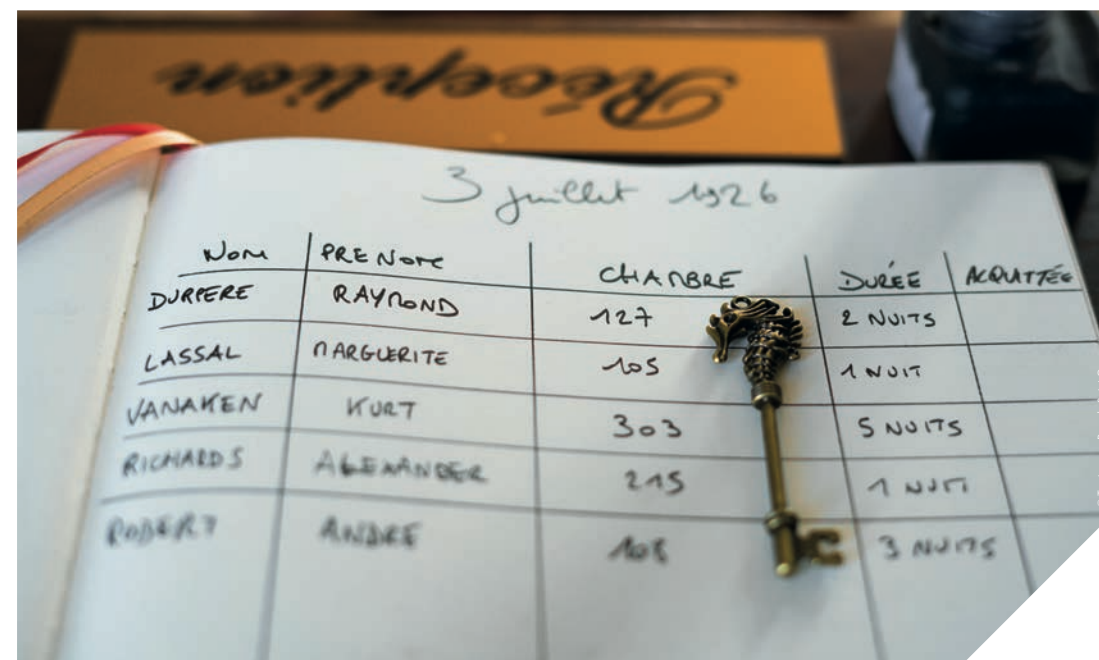 Réception
3 juillet 1926
NOM PRENOM CHAMBRE DURÉE ACQUITTÉE
DURPERE RAYMOND 127 2 NUITS
LASSAL MARGUERITE 105 1 NUIT
VANAKEN KURT 303 5 NUITS
RICHARDS ALEXANDER 215 1 NUIT
ROBERT ANDRE 108 3 NUITS